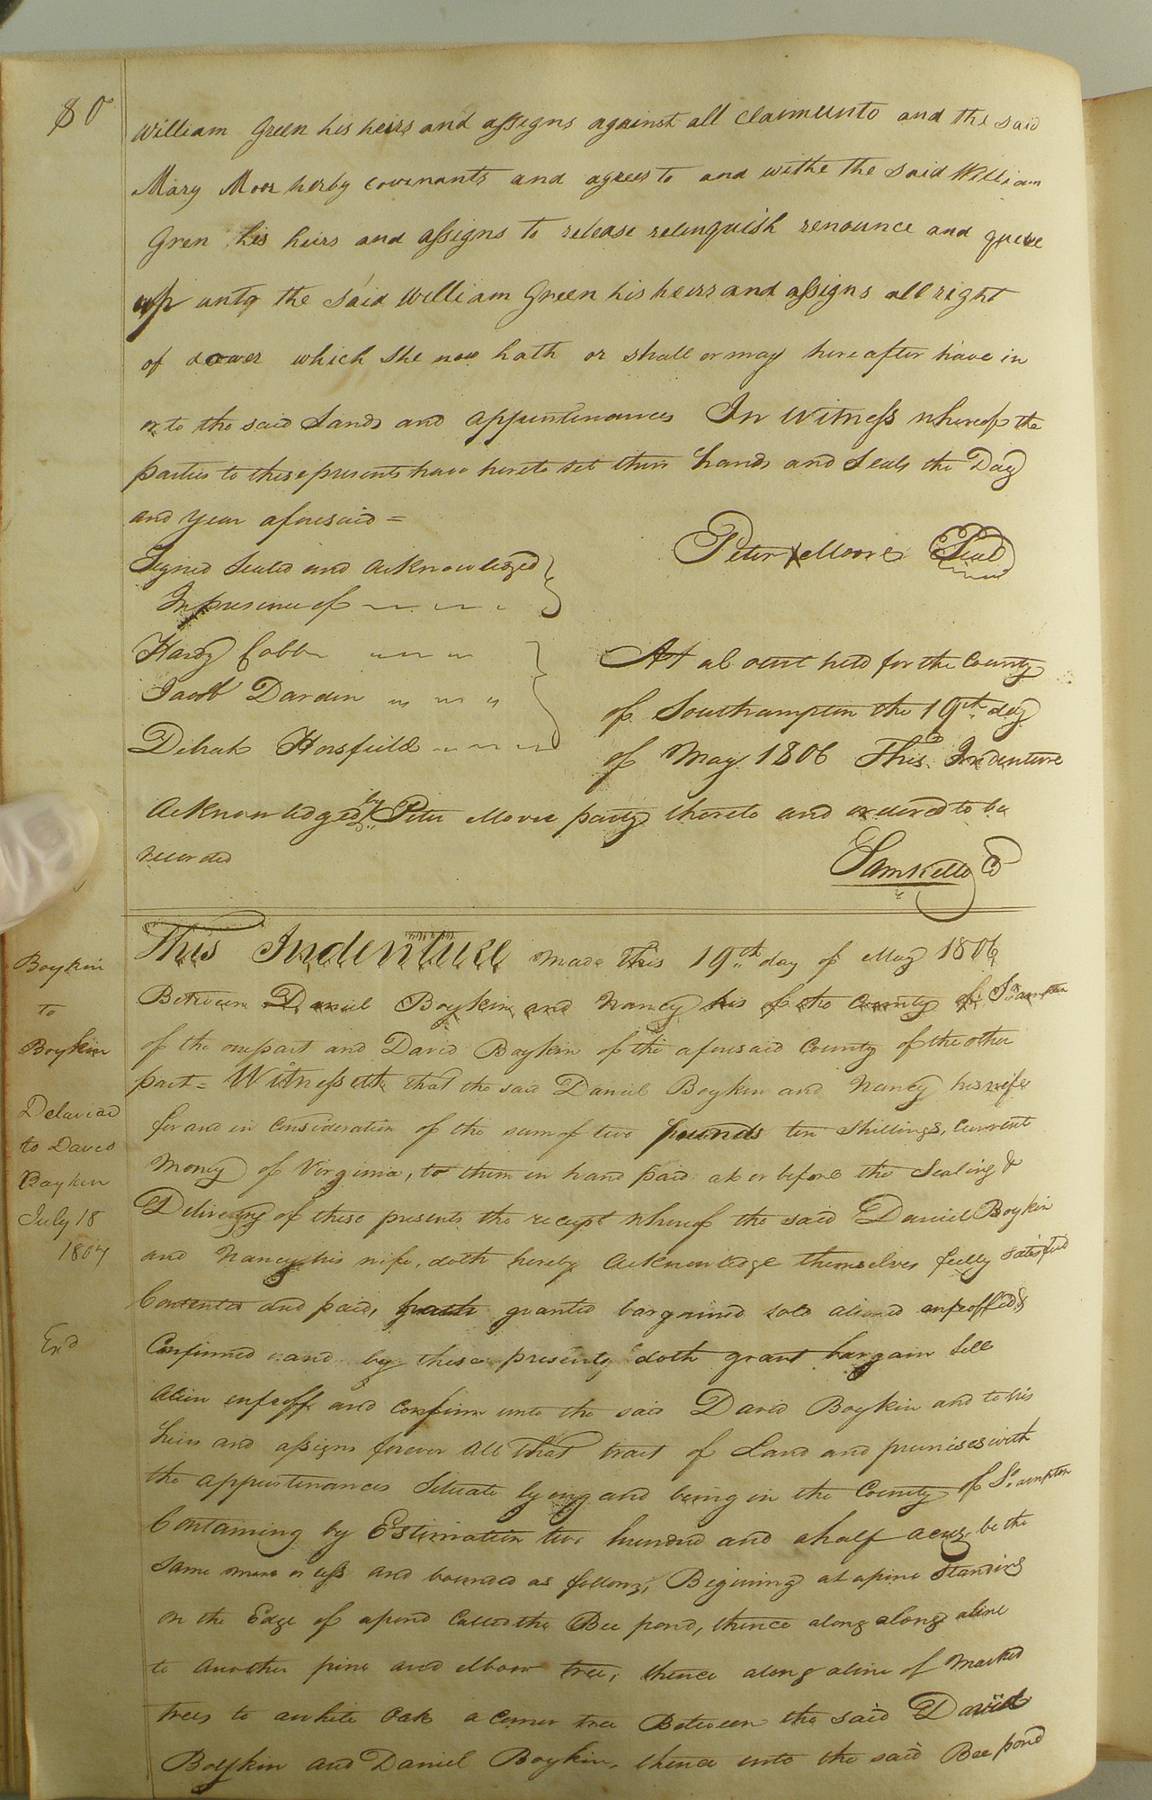 80
William Green his heirs and assigns against all claimunto and the said
Mary Moor herby covenants and agrees to and withe the said William
Gren his heirs and assigns to release relenquish renounce and
up unto the said William Green his heirs and assigns all right
of dower which she now hath or shall or may hereafter have in
or to the said Lands and appurtenances In Witness whereof the
parties to these presents have hereto set their hands and Seals the Day
and year aforesaid =
Signed Sealed and Acknowledged
In presence of
Peter X Moore Seal
Hardy Cobb
Jacob Darden
Delrah Horsfield
At a Court held for the County
of Southampton the 19th day
of May 1806 This Indenture
Acknowledged by Peter Moore party thereto and ordered to be
recorded
Sam Kello C
This Indenture made this 19th day of May 1806
Boykin
to
Boykin
Delivied
to David
Boykin
July 18
1807
End
Between Daniel Boykin and Nancy his of the County of So.ampton
of the onepart and David Boykin of the aforesaid County of the other
part = Witnesseth that the said Daniel Boykin and Nancy his wife
for and in Consideration of the sum of two pounds ten Shillings, Current
Money of Virginia, to them in hand paid at or before the Sealing &
Delivering of these presents the receipt whereof the said Daniel Boykin
and Nancy his wife, doth hereby Acknowledge themselves fully satisfied
Contented and paid, hath granted bargained sold aliened enfeoffed &
Confirmed and by these presents doth grant bargain Sell
Alien enfeoff and Confirm unto the said David Boykin and to his
heirs and assigns forever All That tract of Land and premises with
the appurtenances Situate lying and being in the County of So.ampton
Containing by Estimation two hundred and ahalf acres be the
same more or less and bounded as follows, Begining at apine Standing
on the Edge of apond Called the Bee pond, thence along along aline
to another pine and elbow tree, thence along aline of Marked
trees to awhite Oak a Corner tree Between the said David
Boykin and Daniel Boykin, thence unto the said Bee pond